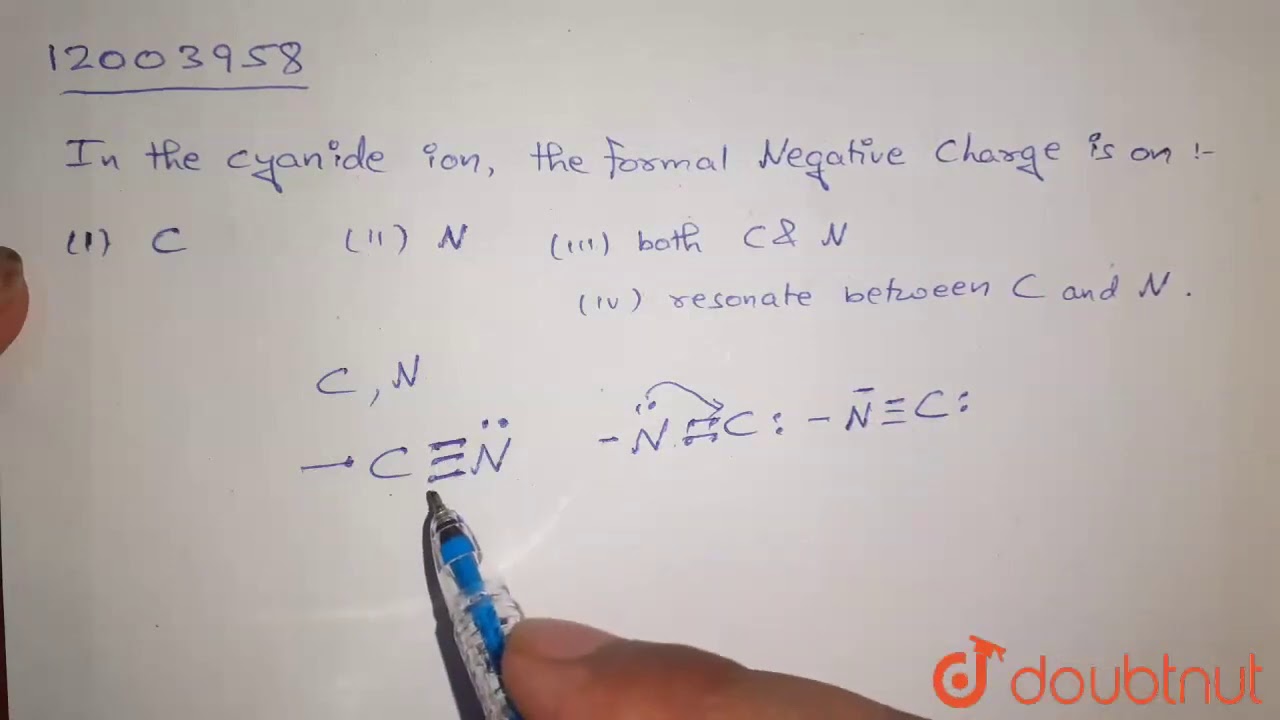 12003958
In the cyanide ion, the formal Negative Charge is on :-
(I) C (II) N (III) both C & N
(IV) resonate between C and N.
C, N
– C ≡ N̈ – N̈ = C : – N̄ ≡ C :
doubtnut